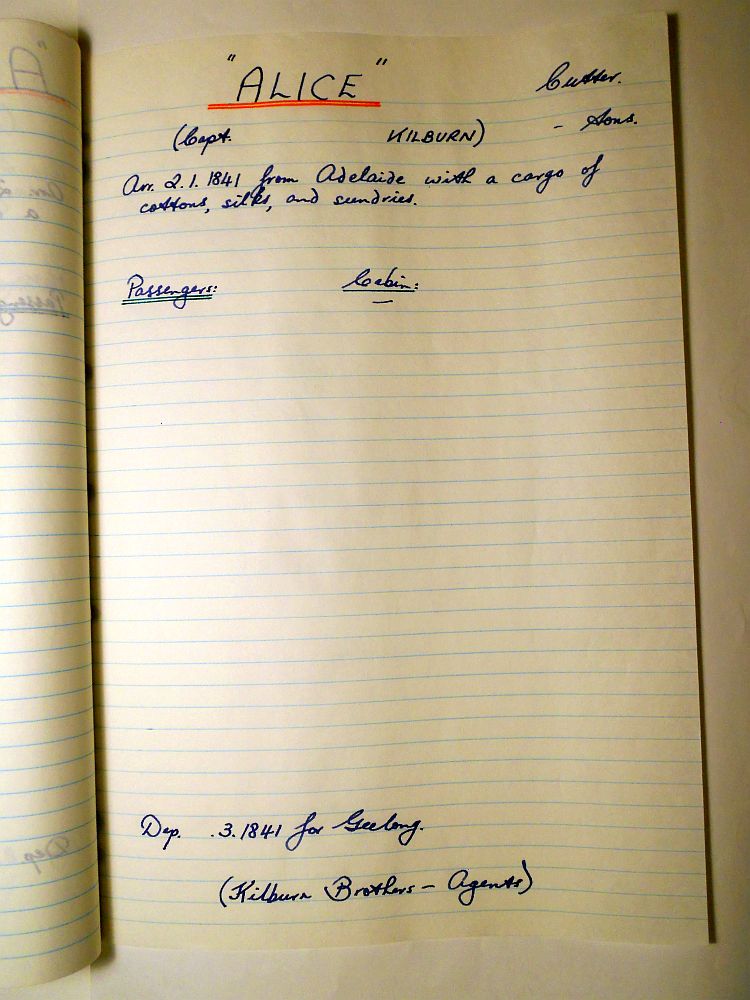 "ALICE" Cutter.
(Capt. KILBURN) - tons.
Arr. 2.1.1841 from Adelaide with a cargo of
cottons, silks, and sundries.
Passengers: Cabin:
—
Dep. .3.1841 for Geelong.
(Kilburn Brothers - Agents)